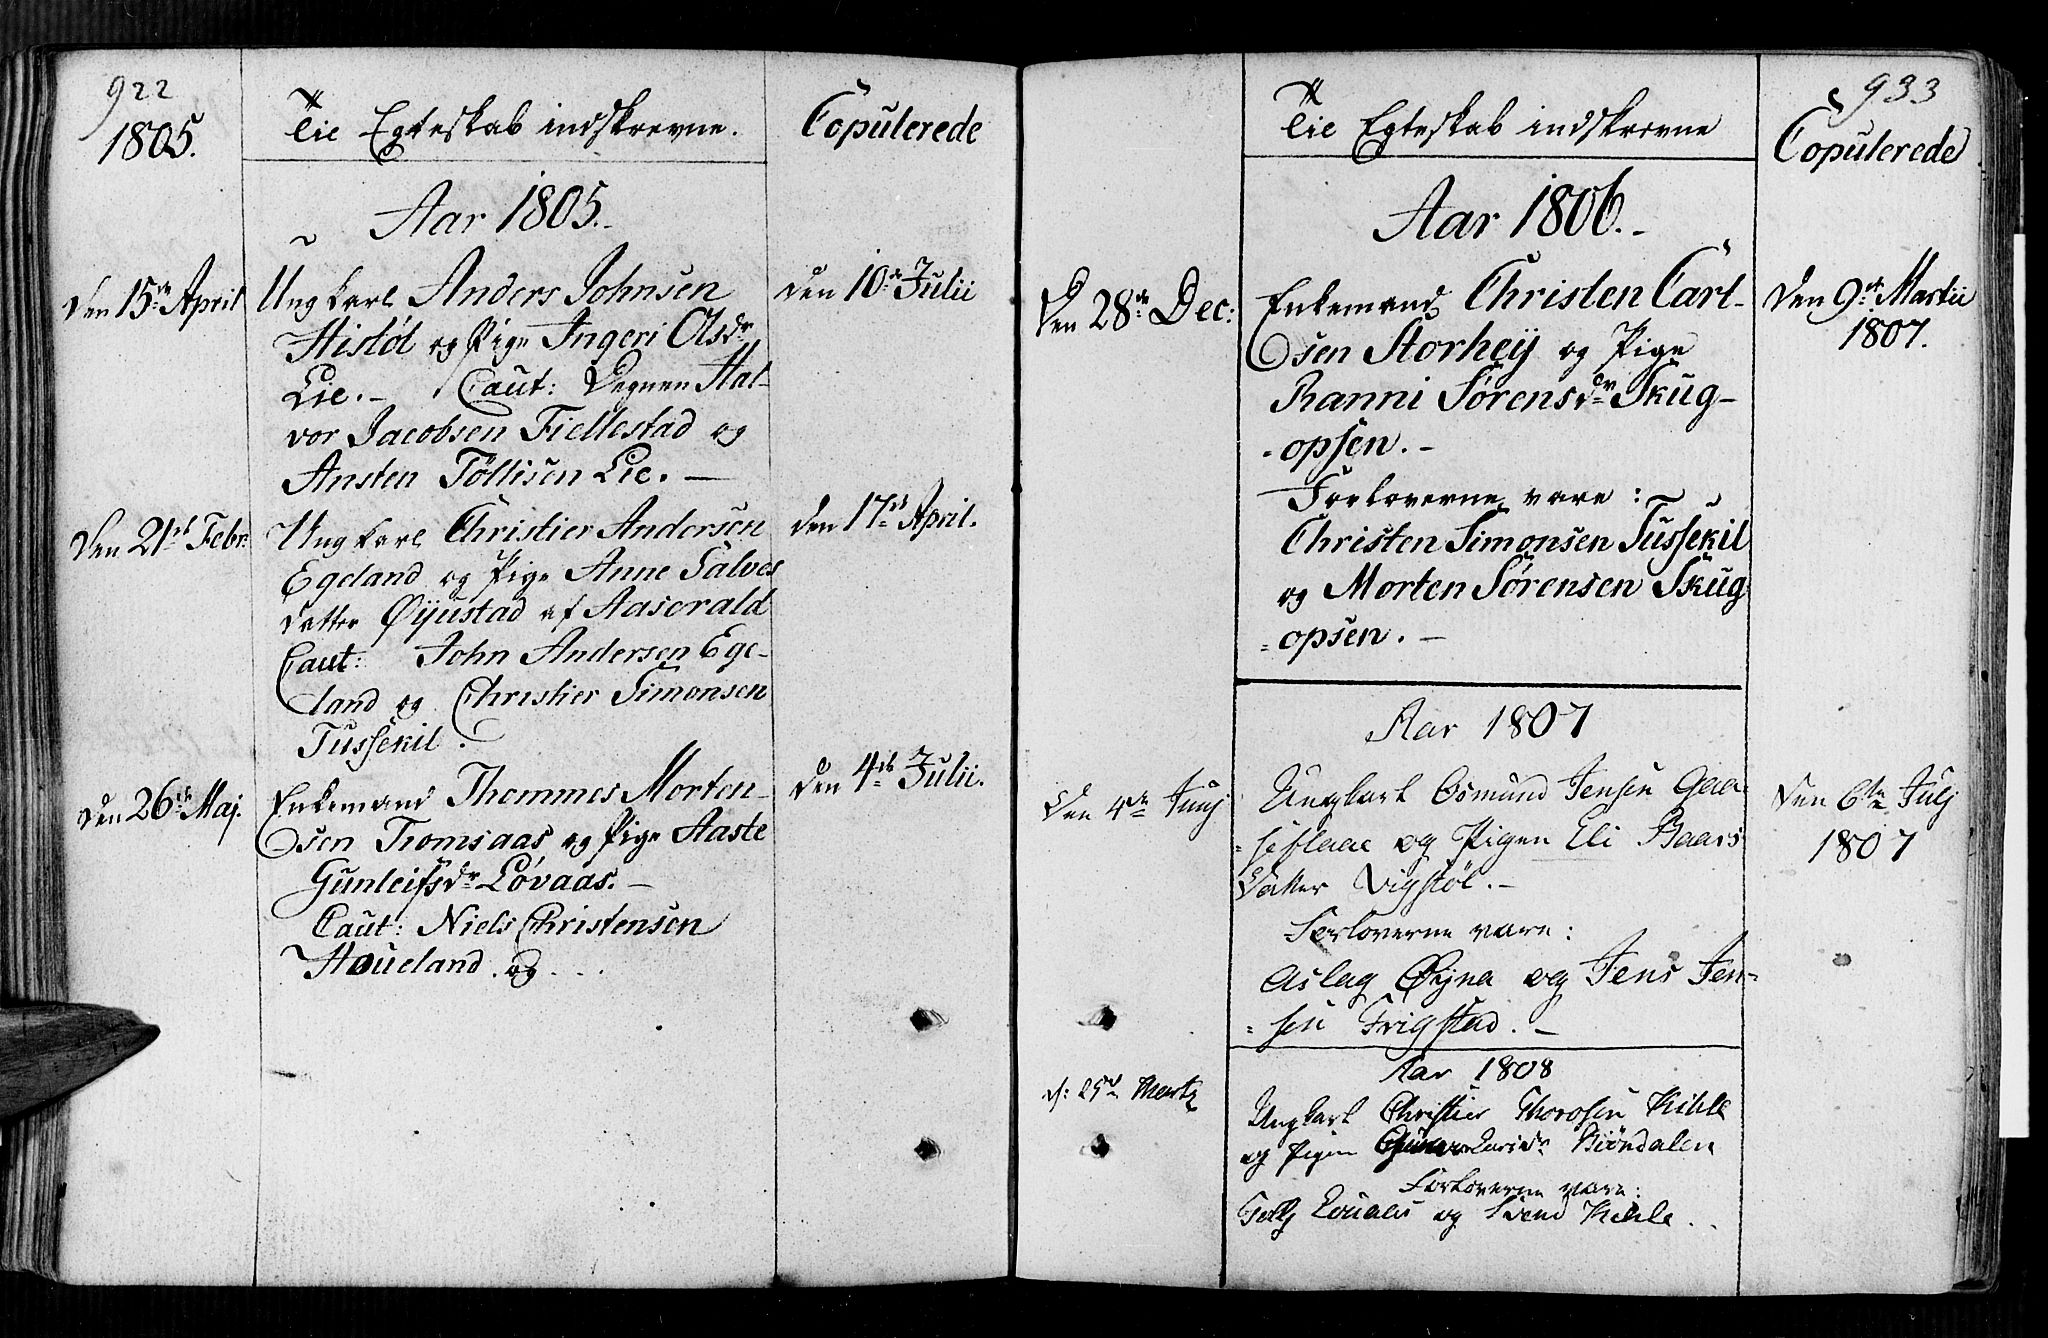 922
1805.
Til Egteskab indskrevne.
Copulerede
Aar 1805.
Den 15de April
Ungkarl Anders Johnsen
Histøl og Pige Ingeri Olsdr
Lie. – Caut: Degnen Hal-
vor Jacobsen Fiellestad og
Ansten Tøllisen Lie. –
den 10de Julii
Den 21de Febr:
Ungkarl Christier Andersen
Egeland og Pige Anne Salves
datter Øijustad af Aaserald
Caut: John Andersen Ege-
land og Christier Simonsen
Tussekil.
den 17de April.
Den 26de Maj.
Enkemand Thommes Morten-
sen Tromsaas og Pige Aaste
Gunleifsdr Løvaas. –
Caut: Niels Christensen
Houeland og . . .
den 4de Julii.
933
Til Egteskab indskrevne
Copulerede
Aar 1806. –
Den 28de Dec:
Enkemand Christen Carl-
sen Storheÿ og Pige
Ranni Sørensdr Skug-
-opsen. –
Forloverne vare :
Christen Simonsen Tussekil
og Morten Sørensen Skug
=opsen. –
Den 9de Martii
1807.
Aar 1807
Den 4de Junj
Ungkarl Osmund Jensen Gaa-
=seflaae og Pigen Eli Baars
Datter Vigstøl. –
Forloverne vare :
Aslag Øÿna og Jens Jen-
=sen Frigstad. –
Den 6te Julj
1807
Aar 1808
d: 25de Martz
Ungkarl Christier Thorosen Kihle
og Pigen Biøndalen
Forloverne vare :
Tellj Louaas og Svend Kihle . .